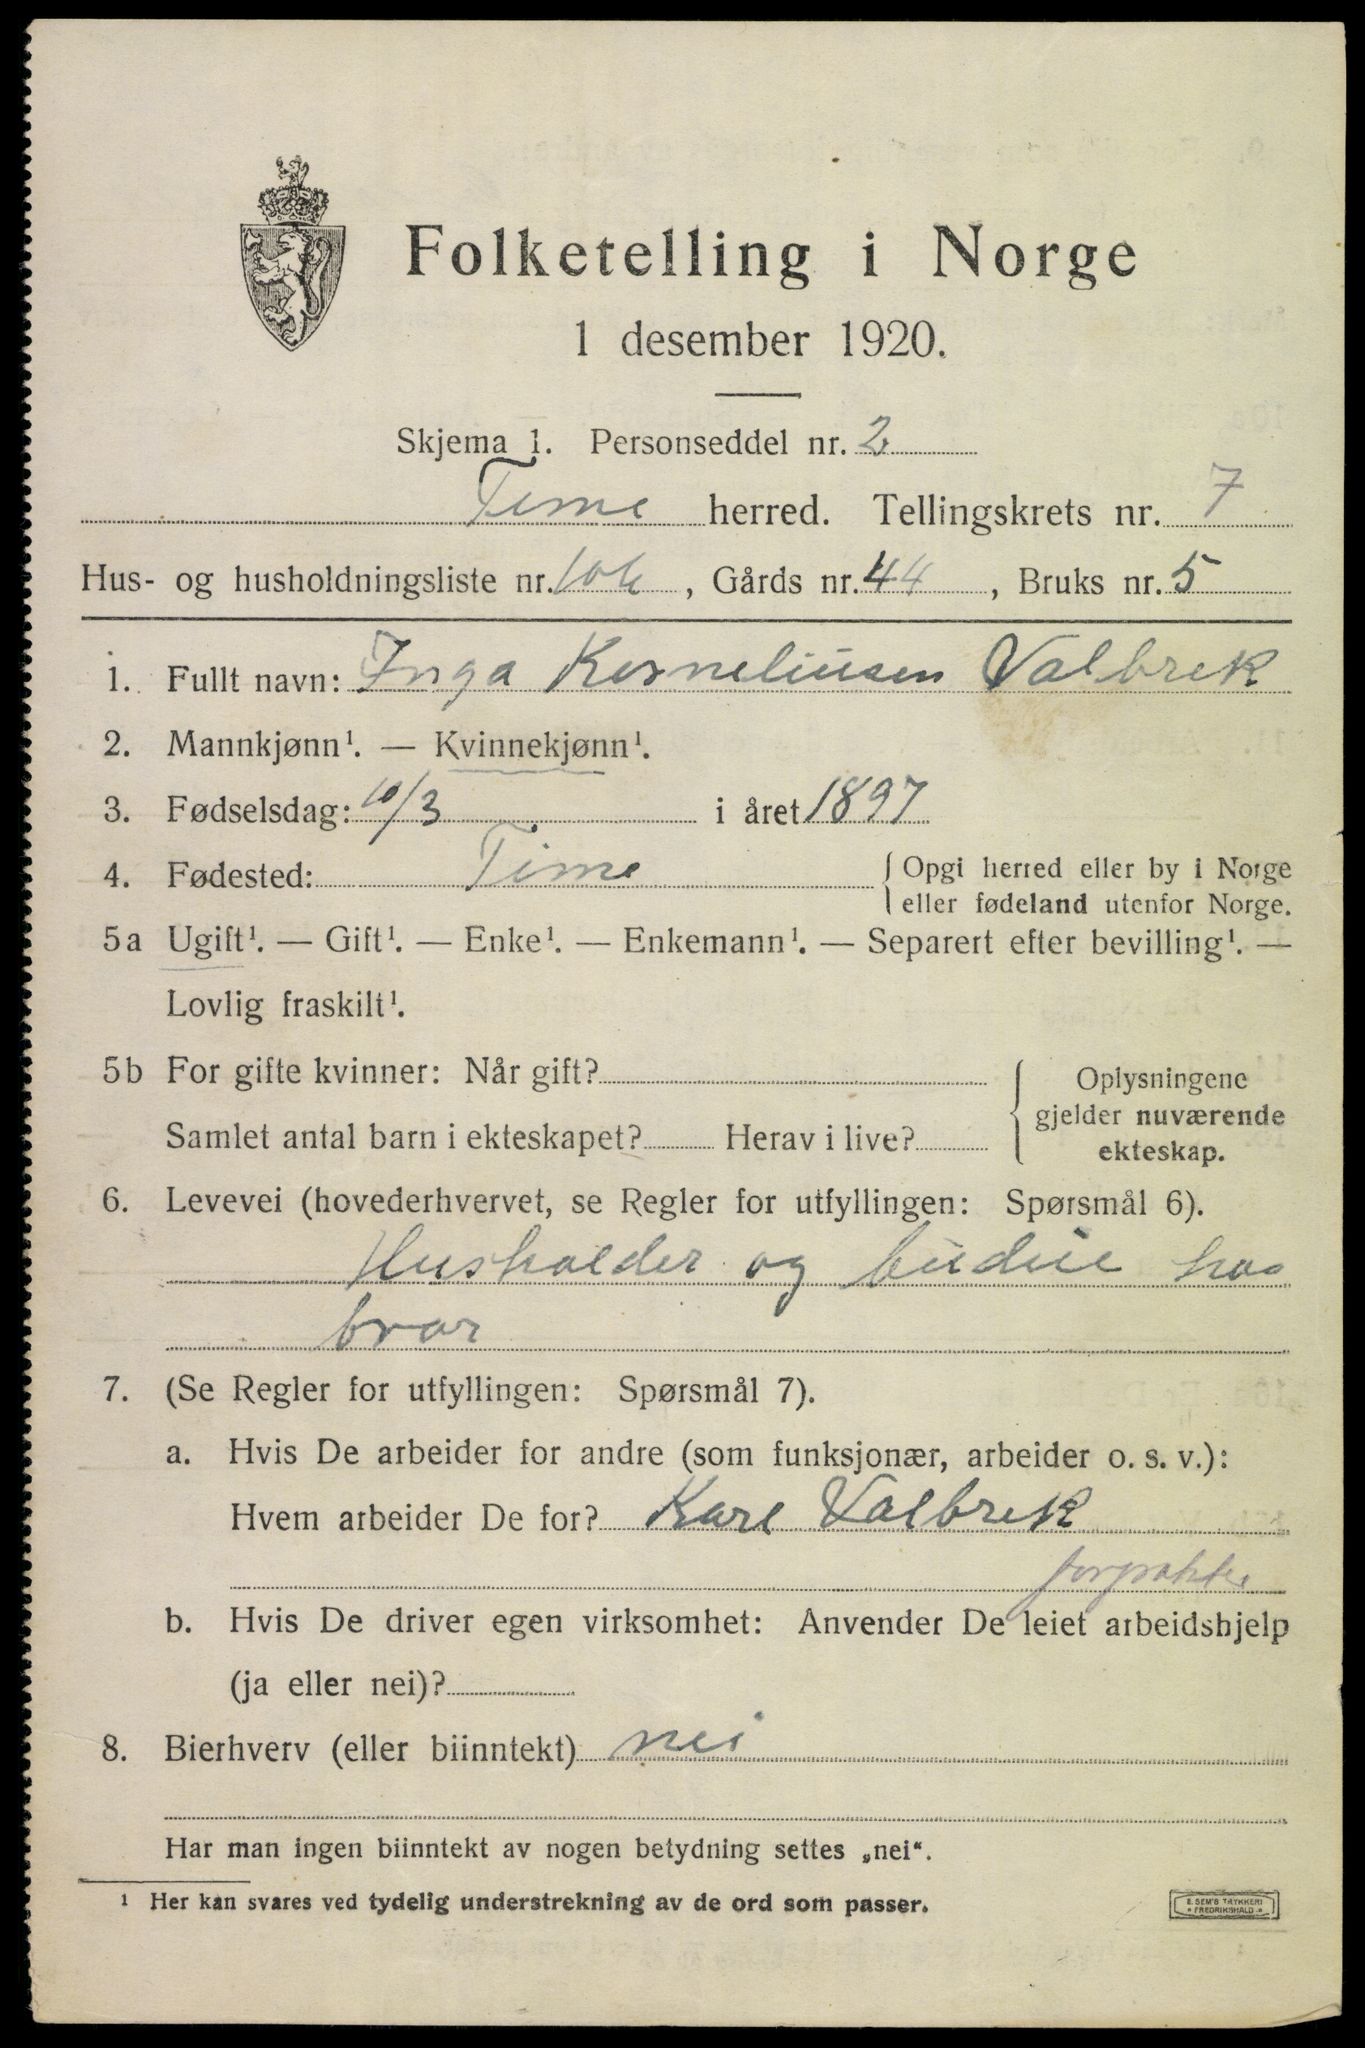 Folketelling i Norge
1 desember 1920.
Skjema 1. Personseddel nr. 2
Time herred. Tellingskrets nr. 7
Hus- og husholdningsliste nr. , Gårds nr. 44, Bruks nr. 5
1. Fullt navn: Inga Korneliusen Valbrek
2. Mannkjønn¹. — Kvinnekjønn¹.
3. Fødselsdag: 10/3 i året 1897
4. Fødested: Time { Opgi herred eller by i Norge
eller fødeland utenfor Norge.
5a Ugift¹. — Gift¹. — Enke¹. — Enkemann¹. — Separert efter bevilling¹. —
Lovlig fraskilt¹.
5b For gifte kvinner: Når gift? { Oplysningene
gjelder nuværende
Samlet antal barn i ekteskapet? Herav i live?
ekteskap.
6. Levevei (hovederhvervet, se Regler for utfyllingen: Spørsmål 6).
Husholder og budeie hos
bror
7. (Se Regler for utfyllingen: Spørsmål 7).
a. Hvis De arbeider for andre (som funksjonær, arbeider o. s. v.):
Hvem arbeider De for? Karl Valbrek
forpakter
b. Hvis De driver egen virksomhet: Anvender De leiet arbeidshjelp
(ja eller nei)?
8. Bierhverv (eller biinntekt) nei
Har man ingen biinntekt av nogen betydning settes „nei“.
¹ Her kan svares ved tydelig understrekning av de ord som passer.
E. SEM'S TRYKKERI
FREDRIKSHALD